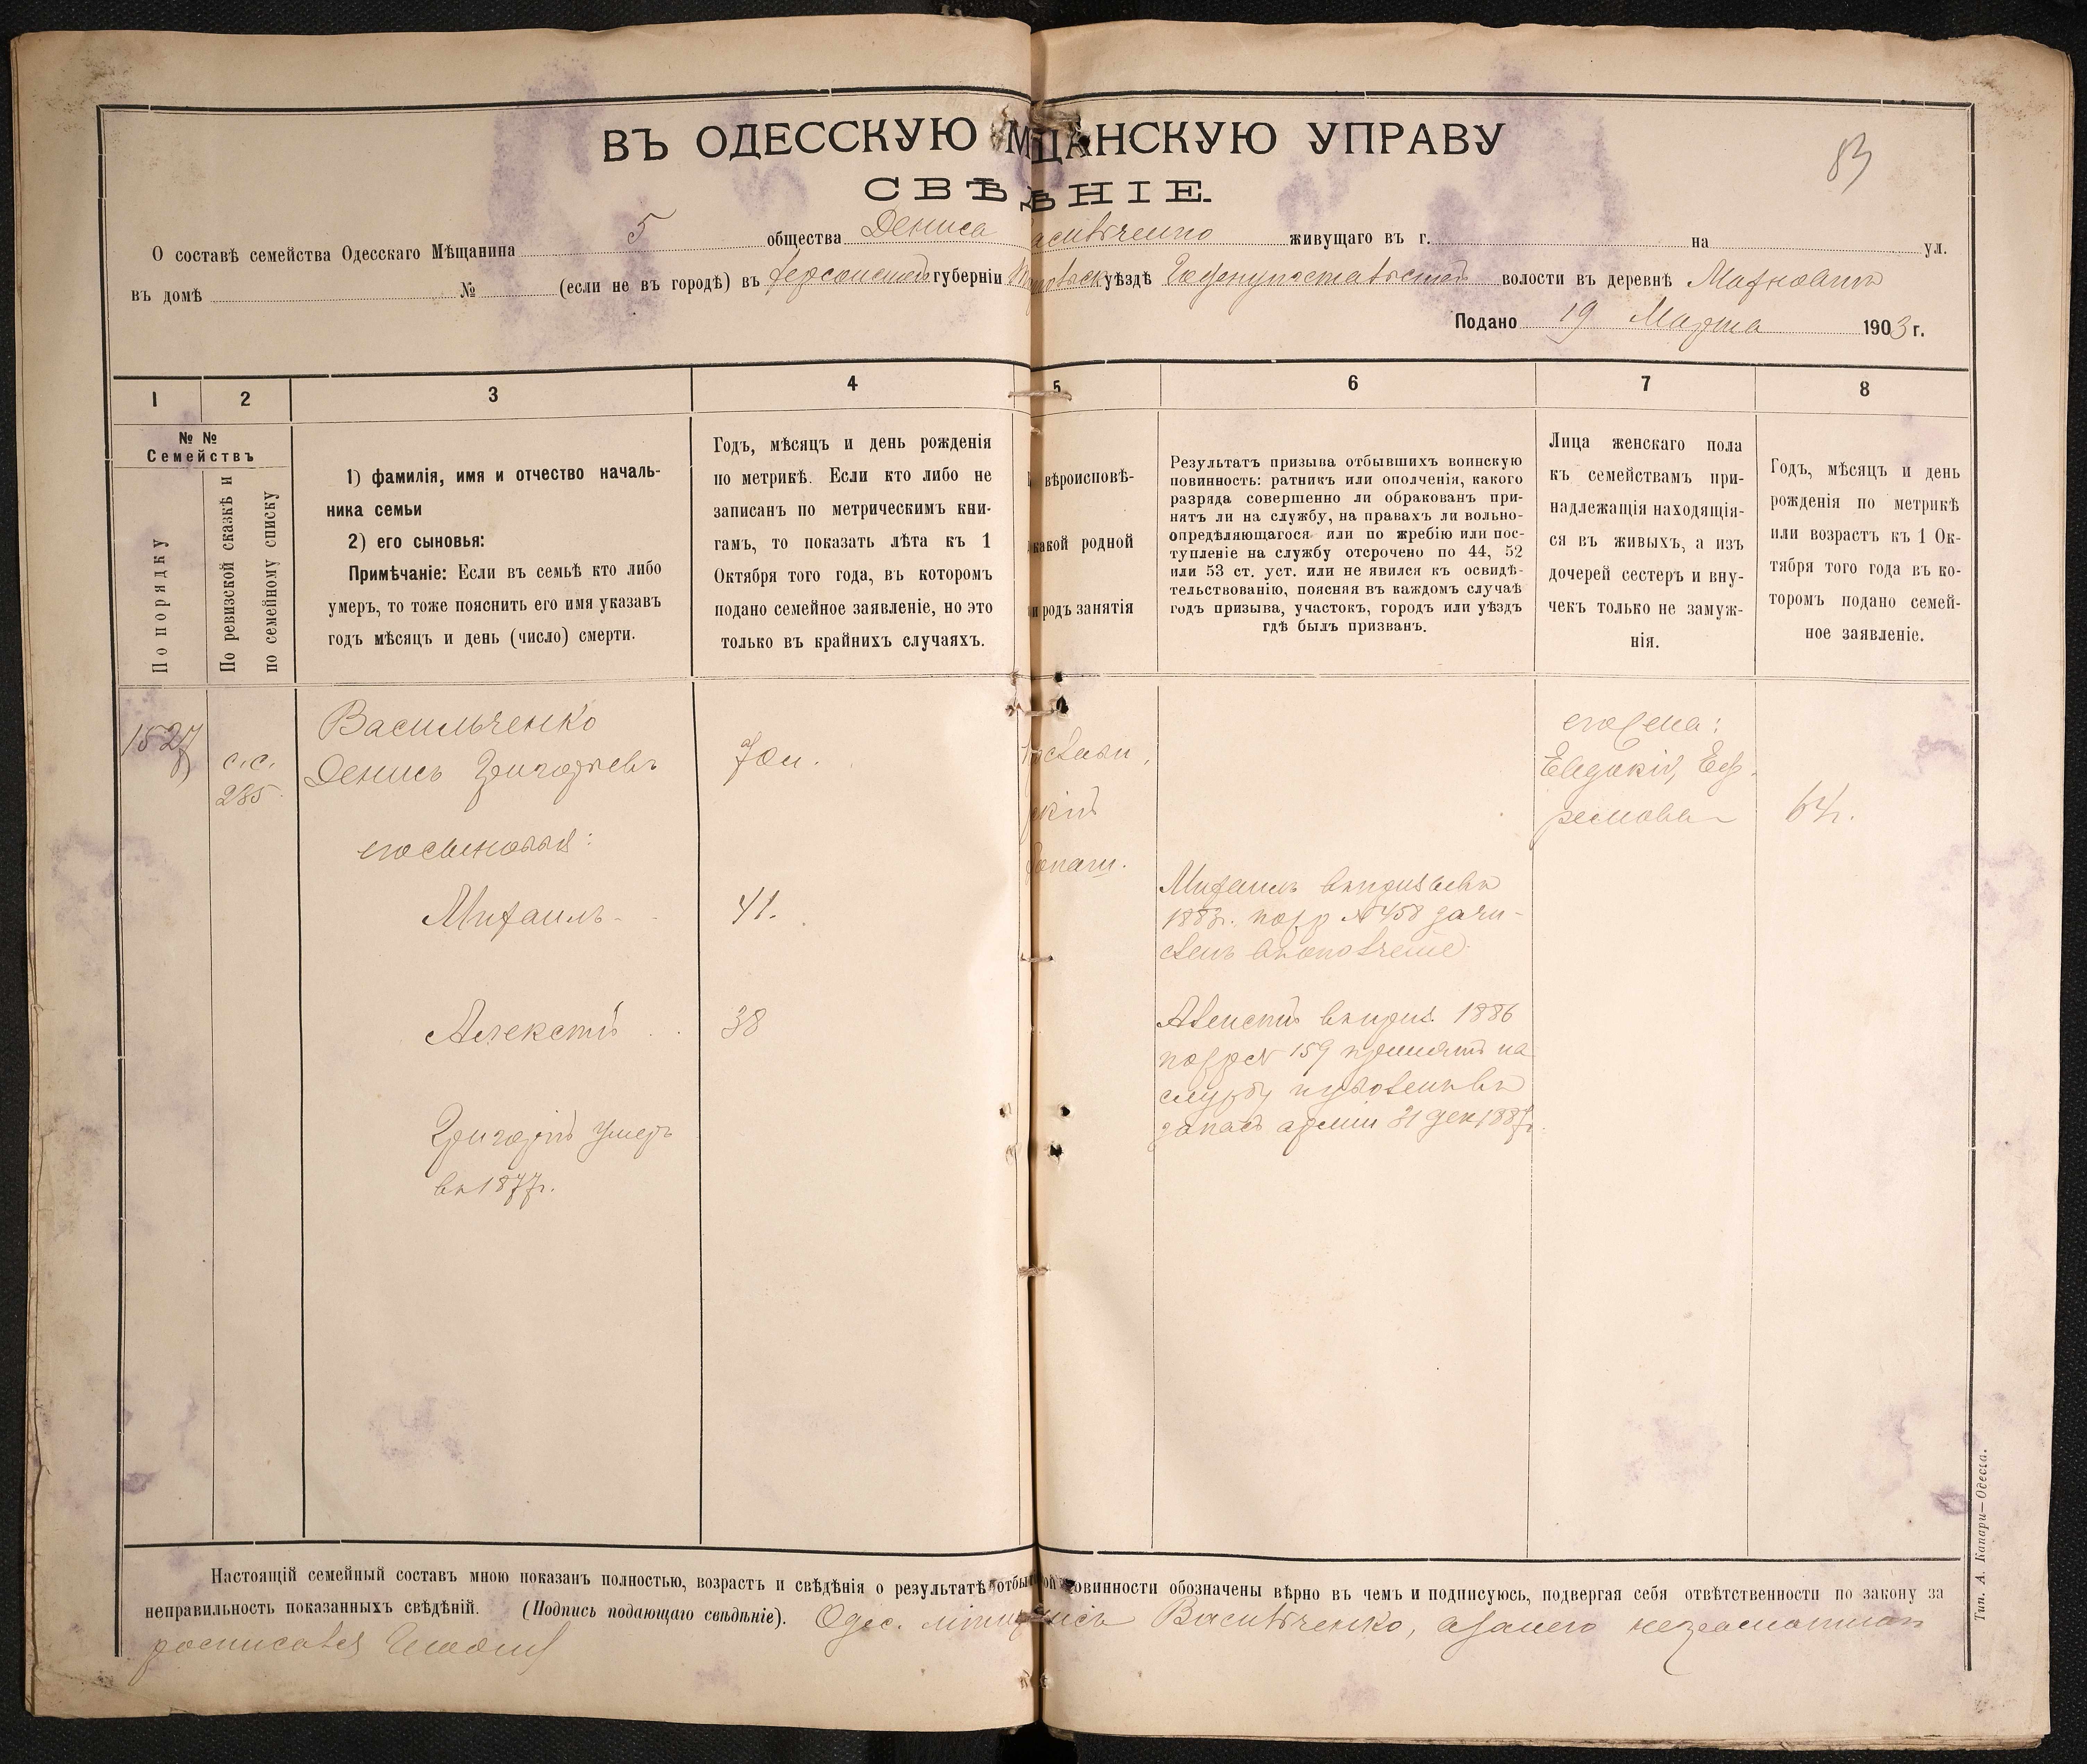 ВЪ ОДЕССКУЮ МЩАНСКУЮ УПРАВУ
83
СВѢДѢНІЕ.
О составѣ семейства Одесскаго Мѣщанина 5 общества Дениса Васильченко живущаго въ г. на ул.
въ домѣ № (если не въ городѣ) въ Херсонской губерніи уѣздѣ волости въ деревнѣ
Подано 19 Марта 1903 г.
1 2 3 4 5 6 7 8
№ №
Семействъ
По порядку
По ревизской сказкѣ и
по семейному списку
1) фамилія, имя и отчество началь-
ника семьи
2) его сыновья:
Примѣчаніе: Если въ семьѣ кто либо
умеръ, то тоже пояснить его имя указавъ
годъ мѣсяцъ и день (число) смерти.
Годъ, мѣсяцъ и день рожденія
по метрикѣ. Если кто либо не
записанъ по метрическимъ кни-
гамъ, то показать лѣта къ 1
Октября того года, въ которомъ
подано семейное заявленіе, но это
только въ крайнихъ случаяхъ.
вѣроисповѣ-
какой родной
и родъ занятія
Результатъ призыва отбывшихъ воинскую
повинность: ратникъ или ополченія, какого
разряда совершенно ли обракованъ при-
нятъ ли на службу, на правахъ ли вольно-
опредѣляющагося или по жребію или пос-
тупленіе на службу отсрочено по 44, 52
или 53 ст. уст. или не явился къ освидѣ-
тельствованію, поясняя въ каждомъ случаѣ
годъ призыва, участокъ, городъ или уѣздъ
гдѣ былъ призванъ.
Лица женскаго пола
къ семействамъ при-
надлежащія находящія-
ся въ живыхъ, а изъ
дочерей сестеръ и вну-
чекъ только не замуж-
нія.
Годъ, мѣсяцъ и день
рожденія по метрикѣ
или возрастъ къ 1 Ок-
тября того года въ ко-
торомъ подано семей-
ное заявленіе.
1527
с.с.
285
Васильченко
Денисъ Григорьевъ
70 л.
его жена:
Евдокія Еф-
ремова
64 г.
его сыновья:
Михаилъ
41.
Михаилъ въ призывѣ
1883 г. по жр № 458 зачи-
сленъ въ ополченіе
Алексѣй
38
Алексѣй въ приз. 1886
по жр № 159 принятъ на
службу
запасъ арміи 31 дек 1887 г.
Григорій умеръ
въ 1877 г.
Настоящій семейный составъ мною показанъ полностью, возрастъ и свѣдѣнія о результатѣ отбытой повинности обозначены вѣрно въ чемъ и подписуюсь, подвергая себя отвѣтственности по закону за
неправильность показанныхъ свѣдѣній. (Подпись подающаго свѣдѣніе). Одес. Васильченко, а за него неграмотнаго
росписался
Тип. А. Капари—Одесса.